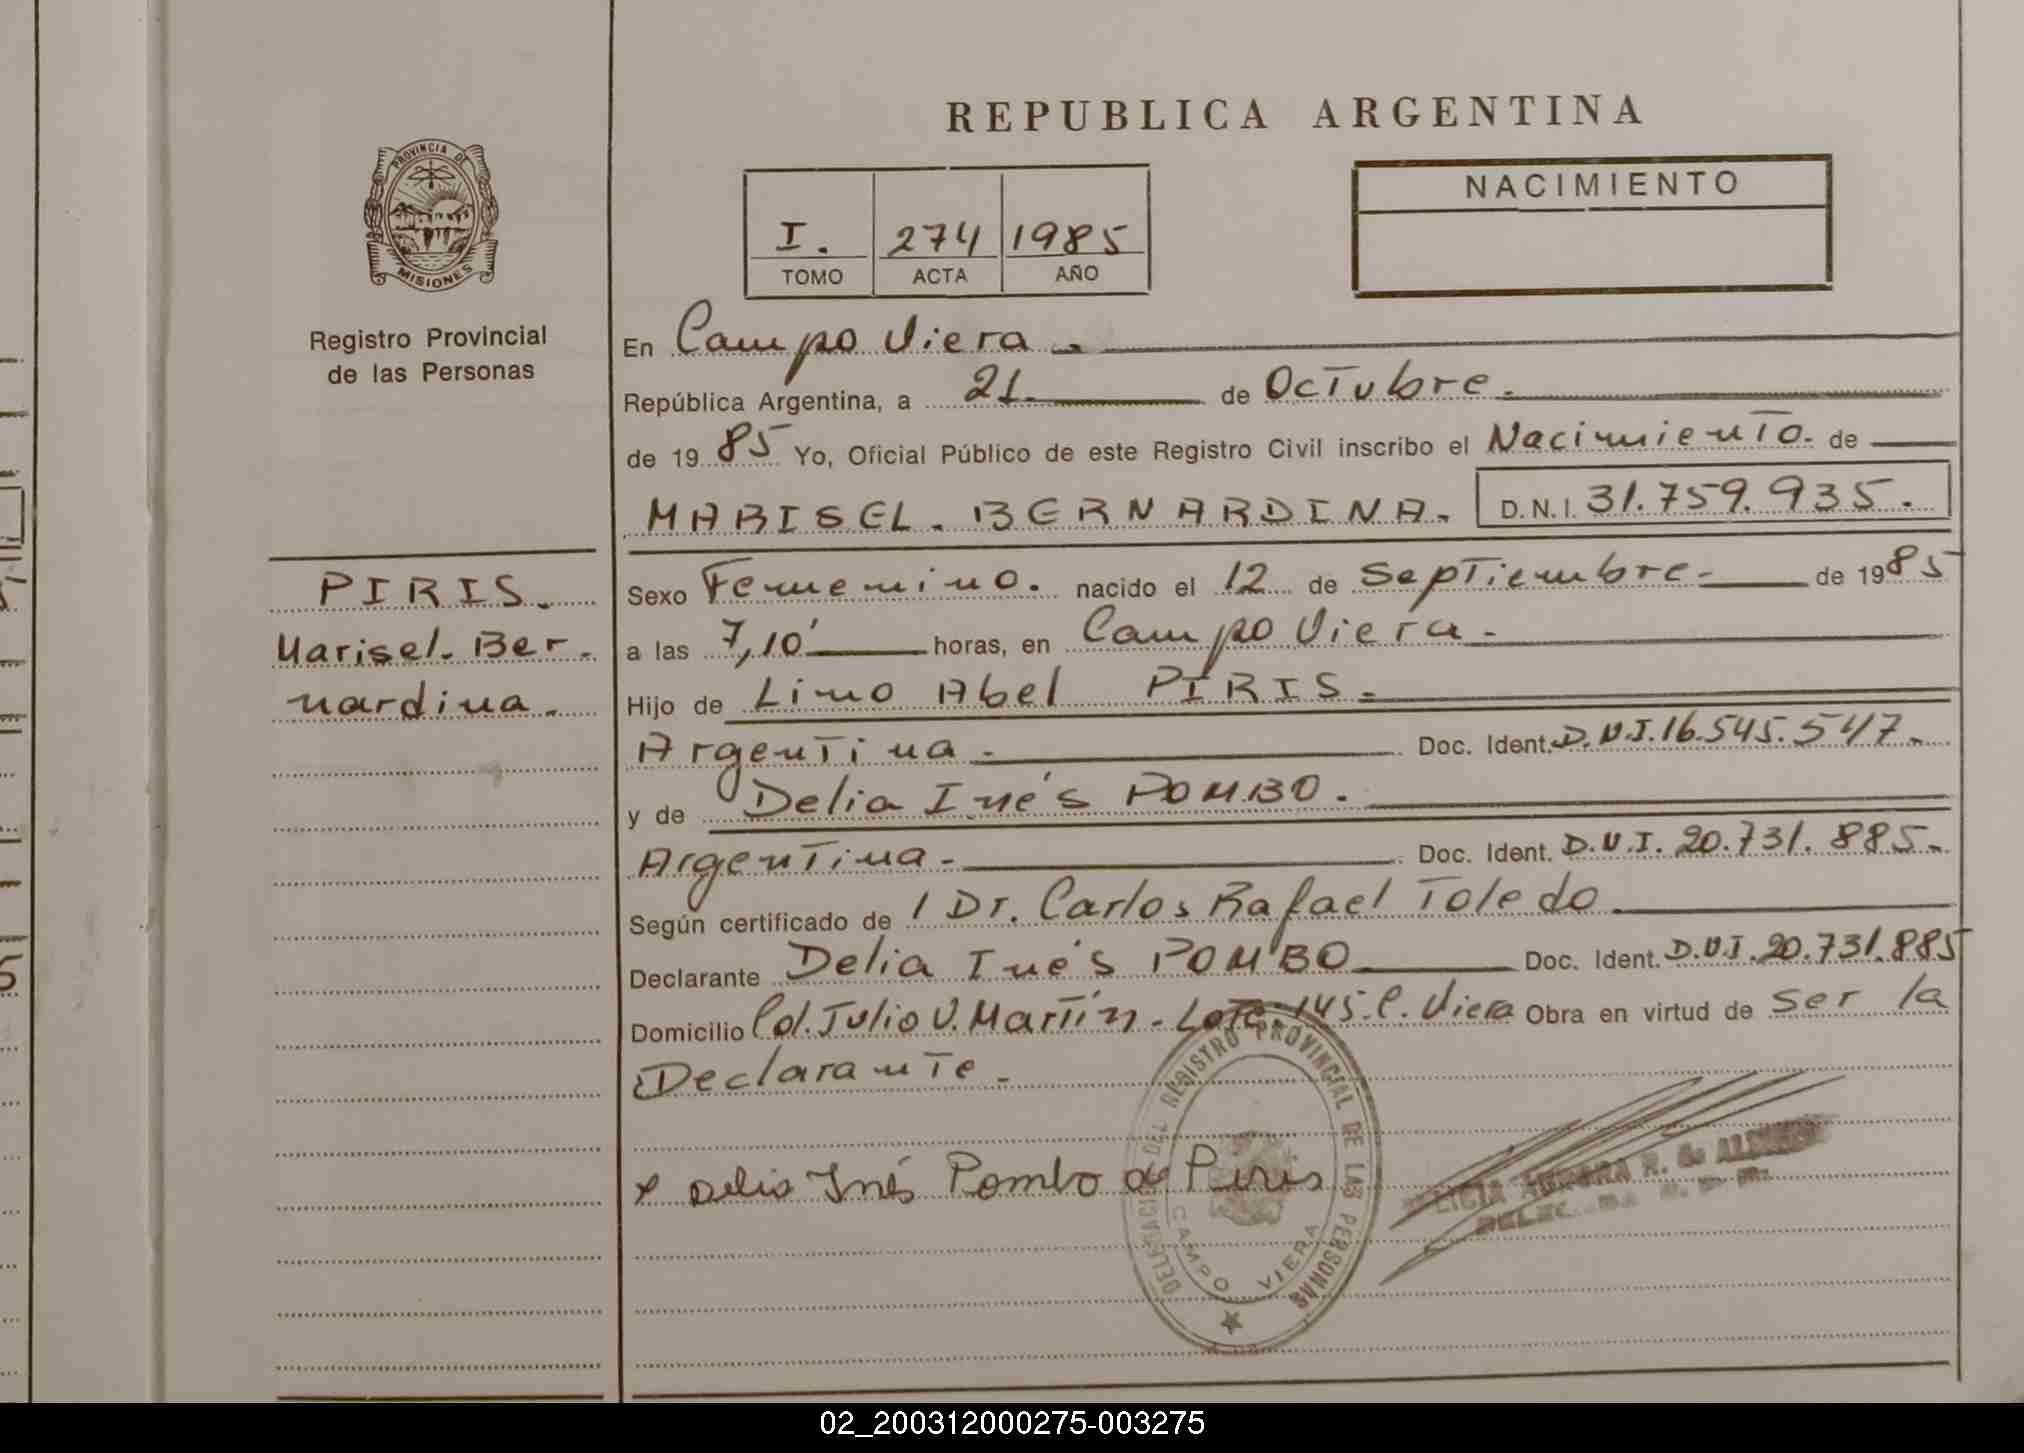 REPUBLICA ARGENTINA
PROVINCIA DE
MISIONES
Registro Provincial
de las Personas
I. 274 1985
TOMO ACTA AÑO
NACIMIENTO
En Campo Viera.
República Argentina, a 21 de Octubre.
de 1985 Yo, Oficial Público de este Registro Civil inscribo el Nacimiento. de
MARISEL. BERNARDINA. D.N.I. 31.759.935.
PIRIS.
Marisel. Ber.
nardina.
Sexo Femenino. nacido el 12 de Septiembre. de 1985
a las 7,10' horas, en Campo Viera.
Hijo de Lino Abel PIRIS.
Argentina. Doc. Ident. D.N.I. 16.545.547.
y de Delia Inés POMBO.
Argentina. Doc. Ident. D.N.I. 20.731.885.
Según certificado de / Dr. Carlos Rafael Toledo
Declarante Delia Inés POMBO Doc. Ident. D.N.I. 20.731.885
Domicilio Col. Julio U. Martín. Lote. 145. C. Viera Obra en virtud de ser la
Declarante.
x Delia Inés Pombo de Piris
DELEGACION DEL REGISTRO PROVINCIAL DE LAS PERSONAS
CAMPO VIERA
02_200312000275-003275